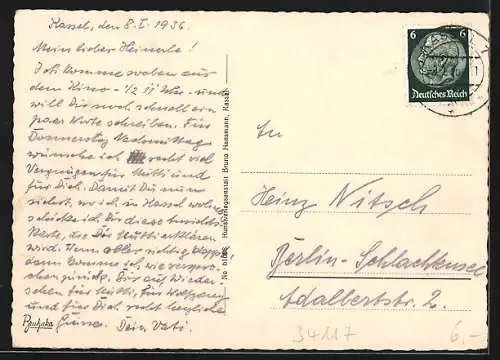 Kassel, den 8.I.1936.
Mein lieber Heinerle!
Ich komme soeben aus
dem Kino - 1/2 11 Uhr - und
will Dir noch schnell ein
paar Worte schreiben. Für
Donnerstag Nachmittag
wünsche ich recht viel
Vergnügen für Mutti und
für Dich. Damit Du nun
siehst, wo ich in Kassel wohne,
schicke ich Dir diese Ansichts-
Karte, die Dir Mutti erklären
wird. Wenn alles richtig klappt
dann komme ich, wie verspro-
chen zurück. Für auf Wieder-
sehen für Mutti. Für
und für Dich recht herzliche
Grüsse. Dein Vati.
Ryuhaka
No 61068 Kunstverlagsanstalt Bruno Hansmann, Kassel
6 6
Deutsches Reich
An
Heinz Nitsch
Berlin-Schlachtensee
Adalbertstr. 2.
34117
6,-